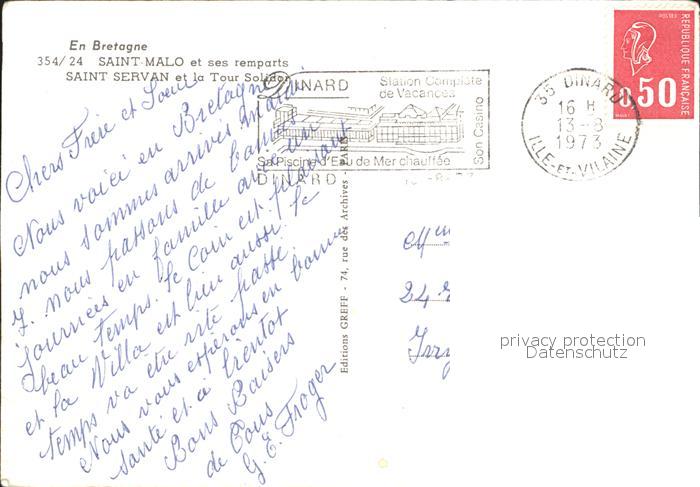 En Bretagne
354/24 SAINT-MALO et ses remparts
SAINT SERVAN et la Tour Solidor
Chers Frère et Soeur
Nous voici en Bretagne
nous sommes arrivés mardi
7. nous passons de bonnes
journées en famille avec un
beau temps. le coin est plaisant
et la Villa est bien aussi. le
temps va être vite passé.
Nous vous espérons en bonne
santé et à bientôt
Bons Baisers
de Tous
G. E. Froger
Editions GREFF - 74, rue des Archives - PARIS
DINARD
Station Complète
de Vacances
Son Casino
Sa Piscine d'Eau de Mer chauffée
DINARD
35 DINARD
16 H
13-8
1973
ILLE-ET-VILAINE
REPUBLIQUE FRANÇAISE
0.50
24
Ivry
privacy protection
Datenschutz